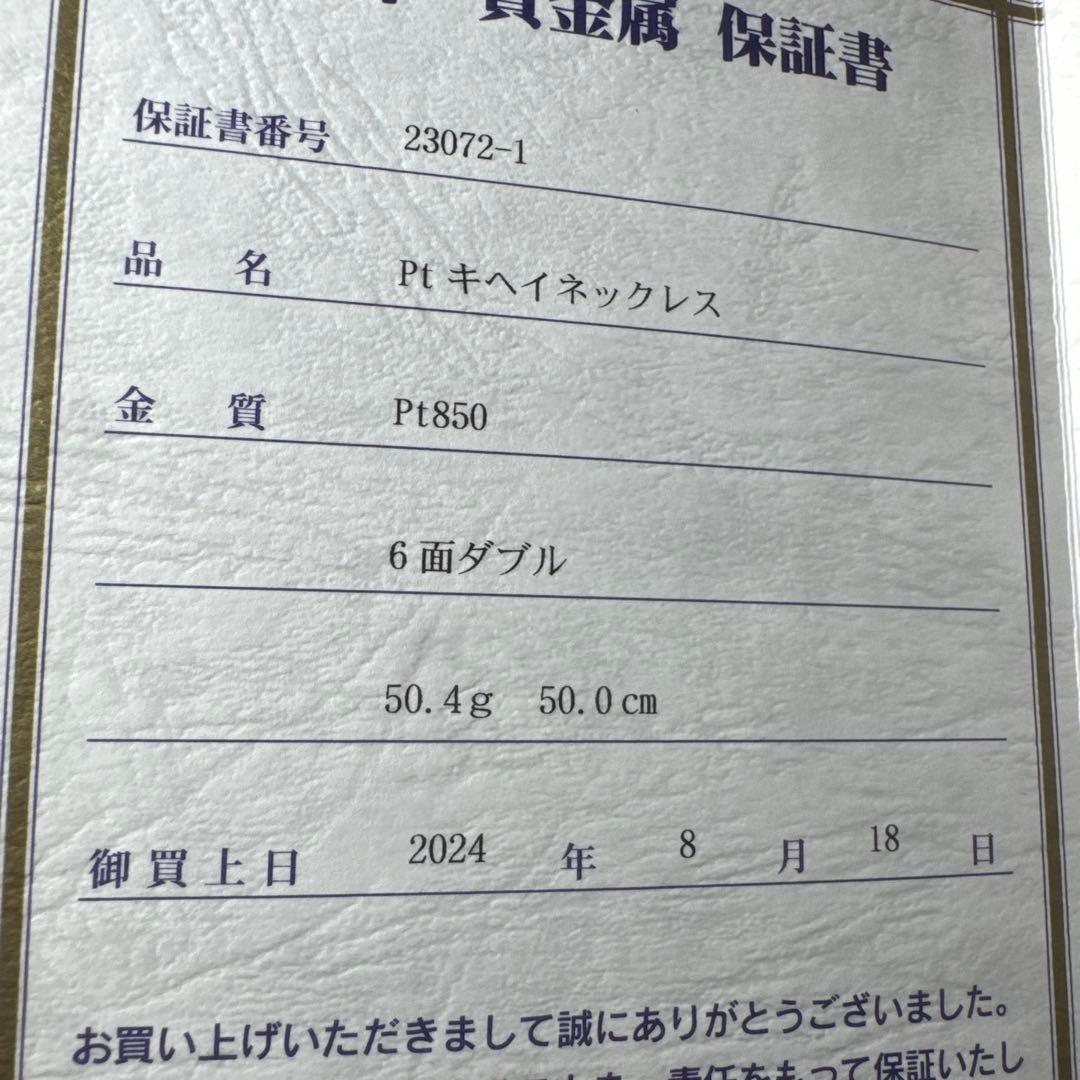 貴金属 保証書
保証書番号 23072-1
品名 Pt キヘイネックレス
金質 Pt850
6面ダブル
50.4g 50.0cm
御買上日 2024 年 8 月 18 日
お買い上げいただきまして誠にありがとうございました。
責任をもって保証いたし